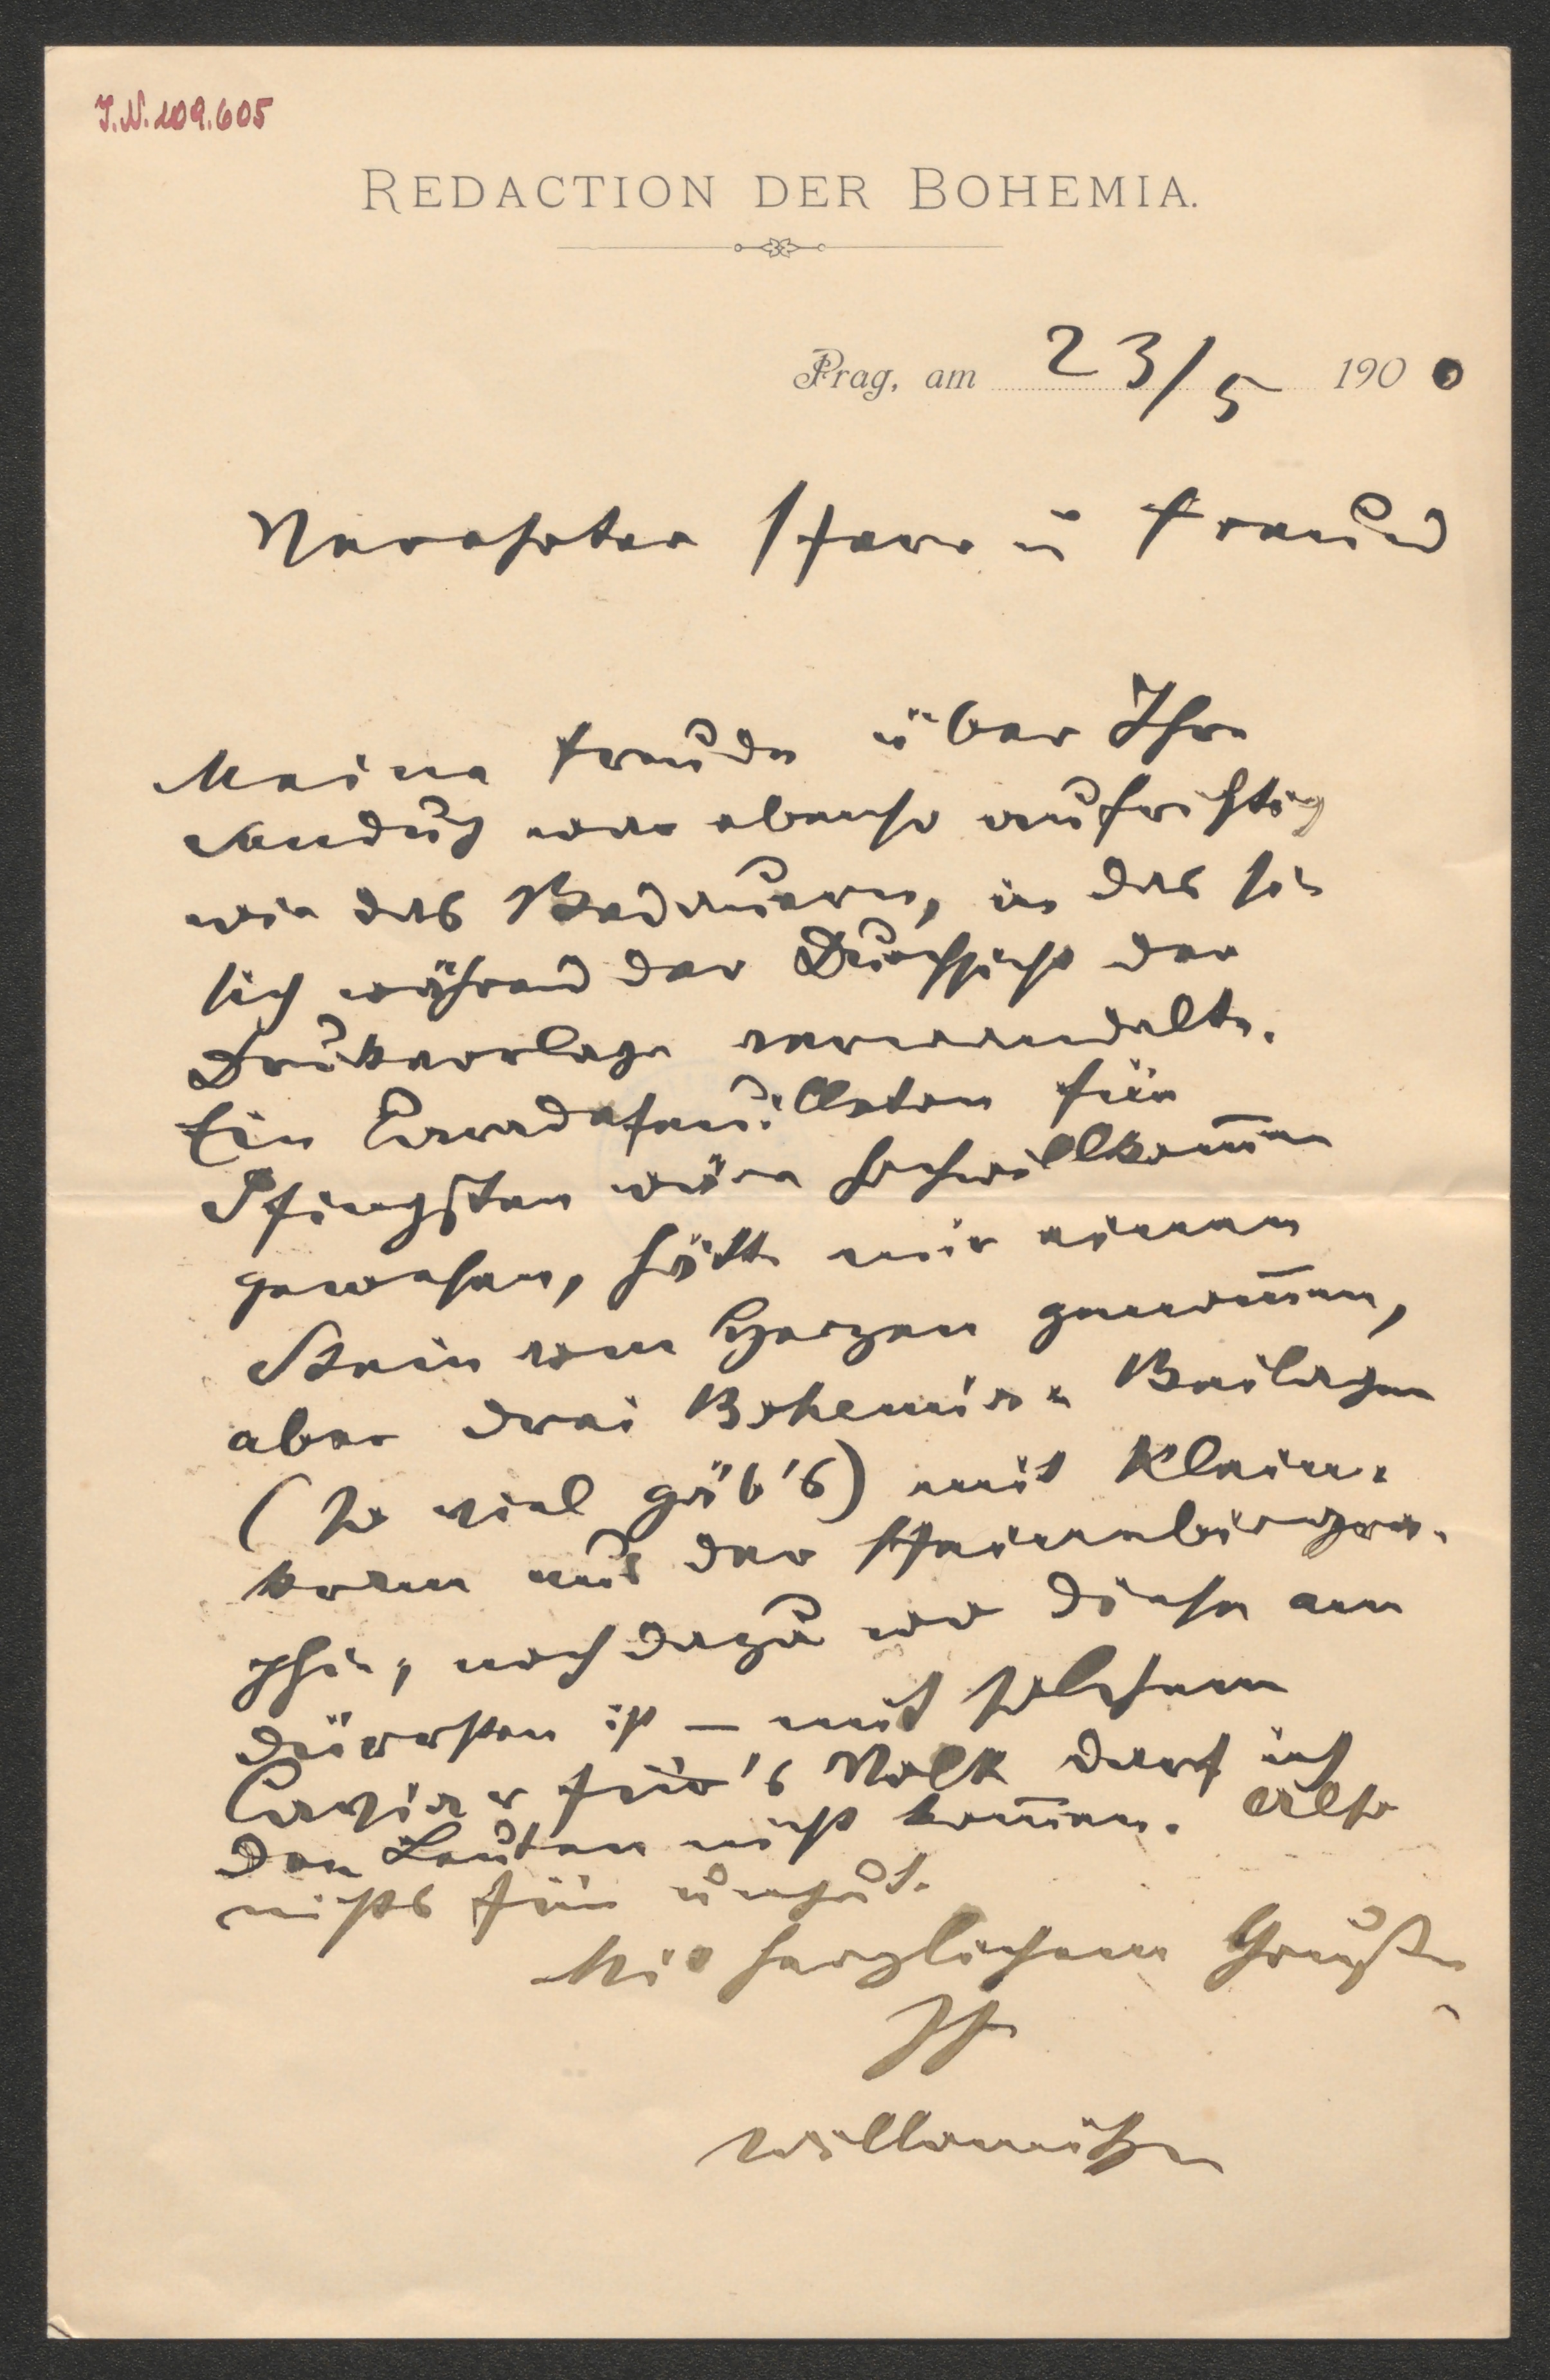 J.N. 109.605
REDACTION DER BOHEMIA.
Prag, am 23/5 1900
Verehrter Herr ü Freund
Meine Freude über Ihre
Sendung war ebenso aufrichtig
wie das Bedauern, in das sie
sich während der Durchsicht der
Drukvorlage verwandelte.
Ein Paradefeuilleton für
Pfingsten wäre hochwillkom̅en
gewesen, hätte mir einen
Stein vom Herzen genom̅en,
aber drei Bohemia-Beilagen
(so viel gäb's) mit Klein-
kram aus der Heinebiogra-
phie, noch dazu wo diese am
dürrsten ist – mit solchem
Caviar für's Volk darf ich
den Leuten nicht kom̅en. Also
nichts für ungut.
Mit herzlichem Gruße
Ihr
Willomitzer